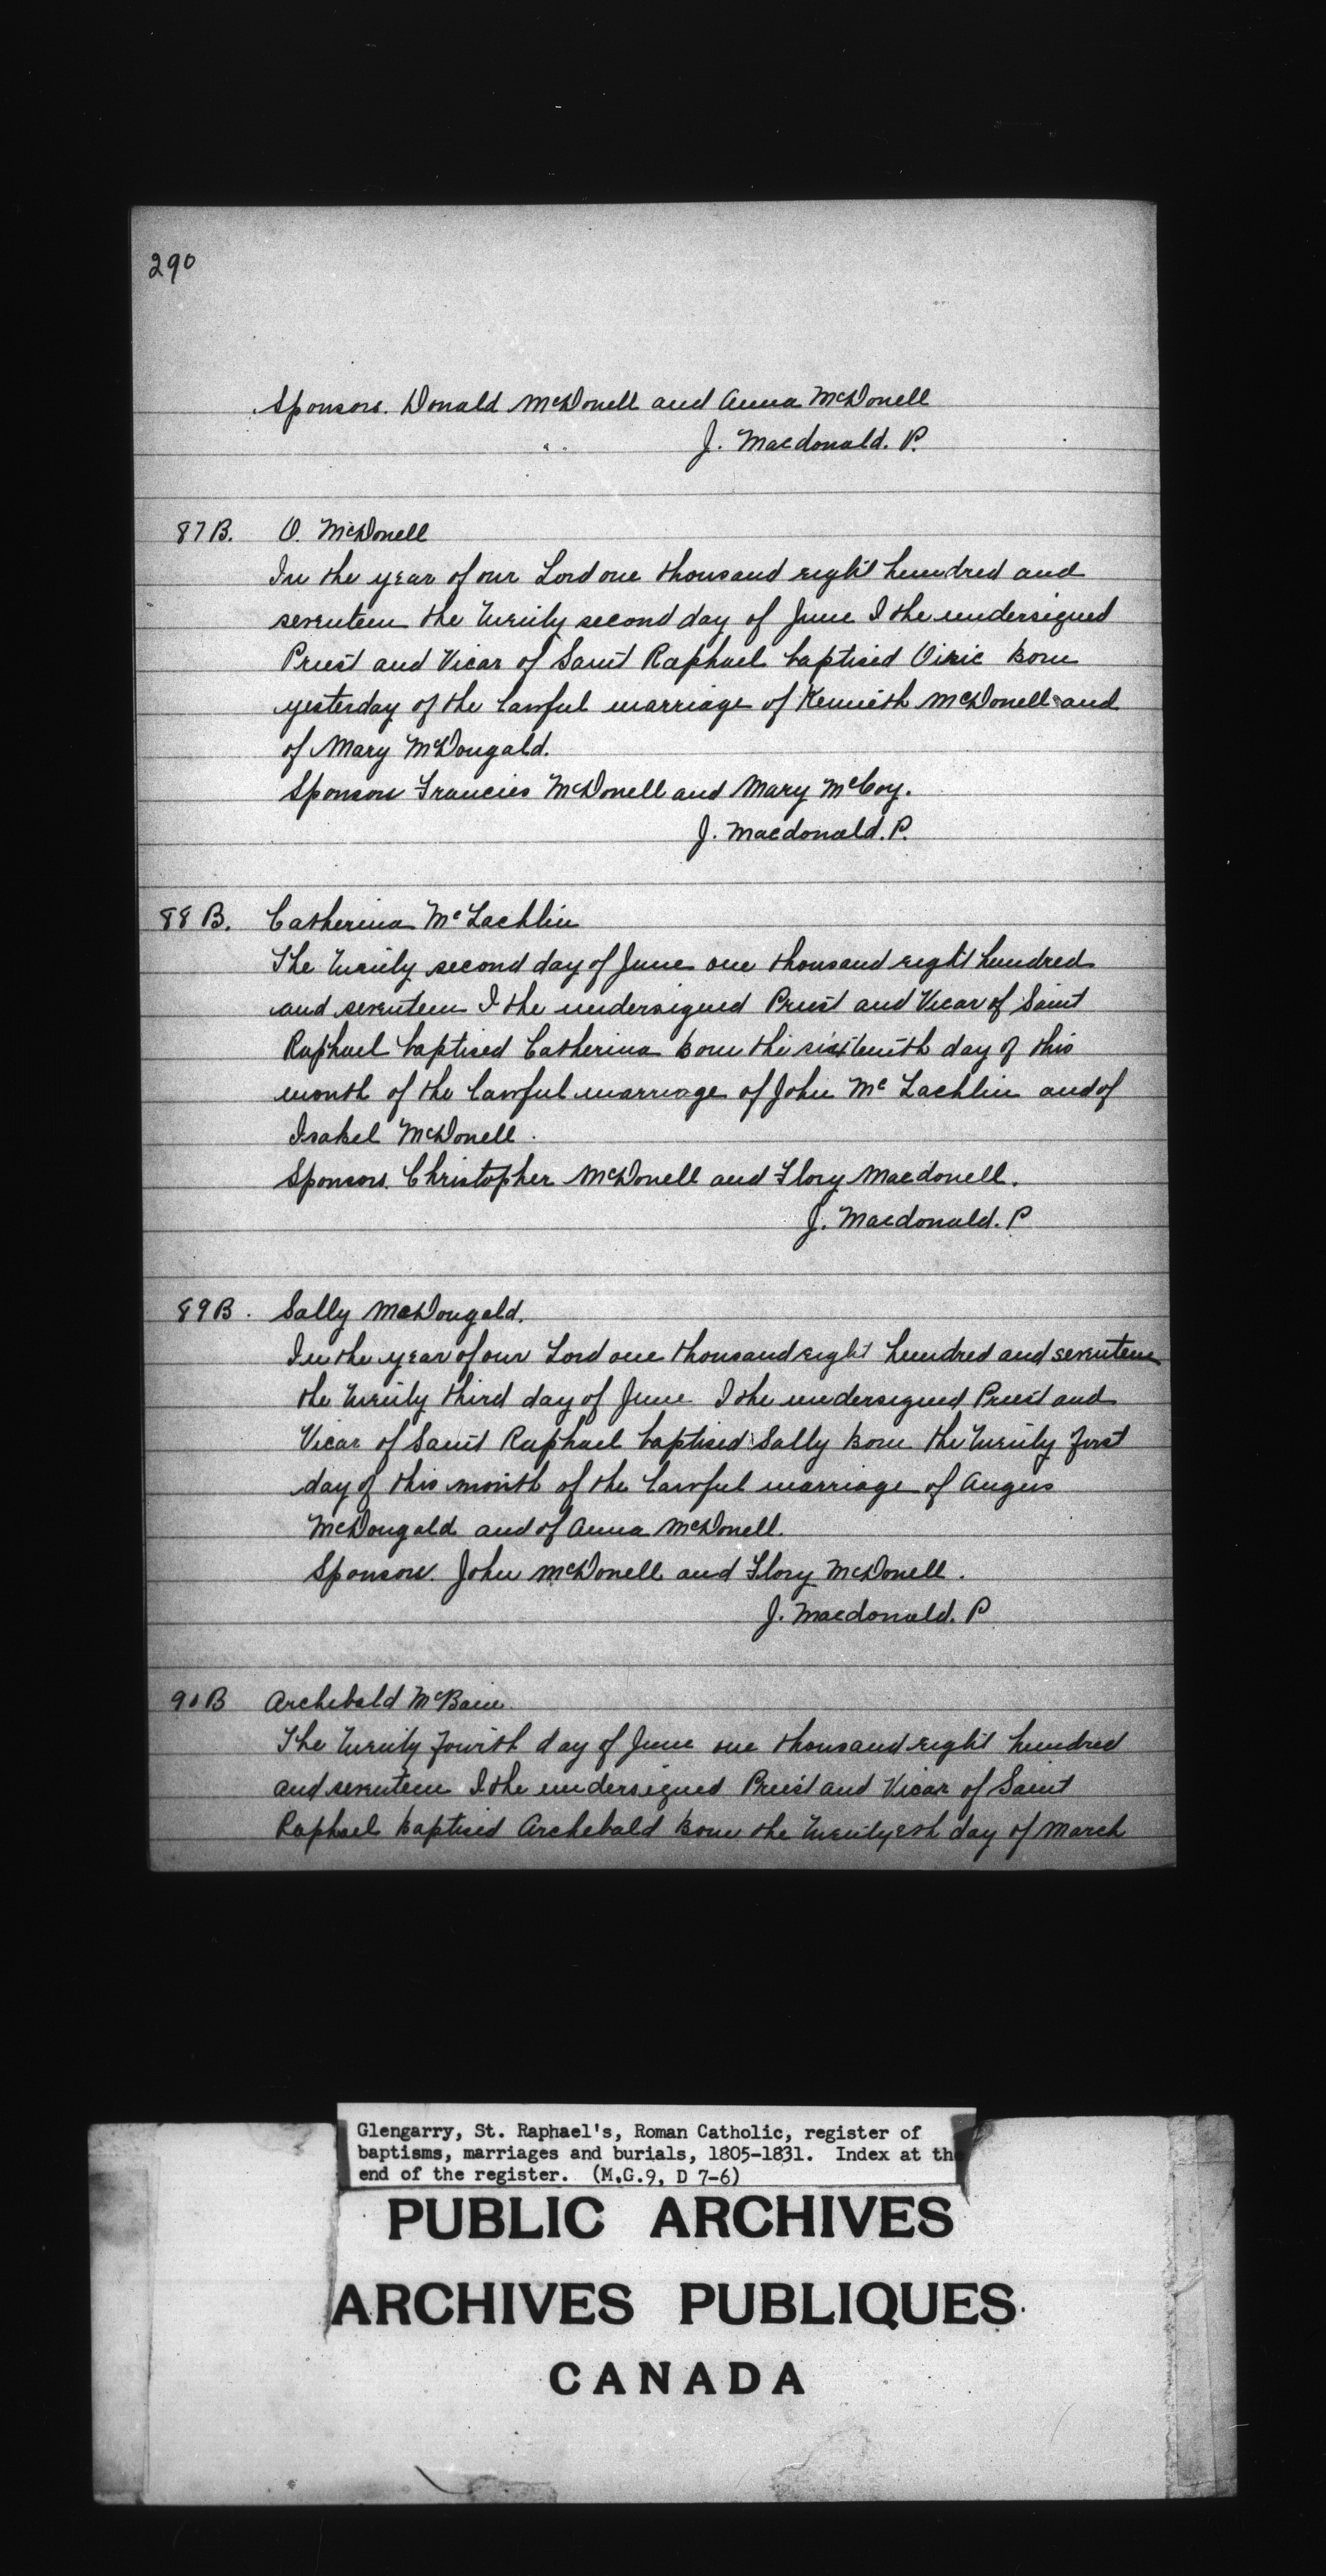 290
Sponsors. Donald McDonell and Anna McDonell
J. Macdonald. P.
87 B. O. McDonell
In the year of our Lord one thousand eight hundred and
seventeen the twenty second day of June I the undersigned
Priest and Vicar of Saint Raphael baptised Oiric born
yesterday of the lawful marriage of Kenneth McDonell and
of Mary McDougald.
Sponsors Francies McDonell and Mary McCoy.
J. Macdonald. P.
88 B. Catherina McLachlin
The twenty second day of June one thousand eight hundred
and seventeen I the undersigned Priest and Vicar of Saint
Raphael baptised Catherina born the sixteenth day of this
month of the lawful marriage of John Mc Lachlin and of
Isabel McDonell.
Sponsors. Christopher McDonell and Flory Macdonell.
J. Macdonald. P
89 B. Sally McDougald.
In the year of our Lord one thousand eight hundred and seventeen
the twenty third day of June I the undersigned Priest and
Vicar of Saint Raphael baptised Sally born the twenty first
day of this month of the lawful marriage of Angus
McDougald and of Anna McDonell.
Sponsors. John McDonell and Flory McDonell.
J. Macdonald. P
90 B Archebald McBain.
The twenty fourth day of June one thousand eight hundred
and seventeen I the undersigned Priest and Vicar of Saint
Raphael baptised Archebald born the twentyeth day of March
Glengarry, St. Raphael's, Roman Catholic, register of
baptisms, marriages and burials, 1805-1831. Index at the
end of the register. (M.G.9, D 7-6)
PUBLIC ARCHIVES
ARCHIVES PUBLIQUES
CANADA